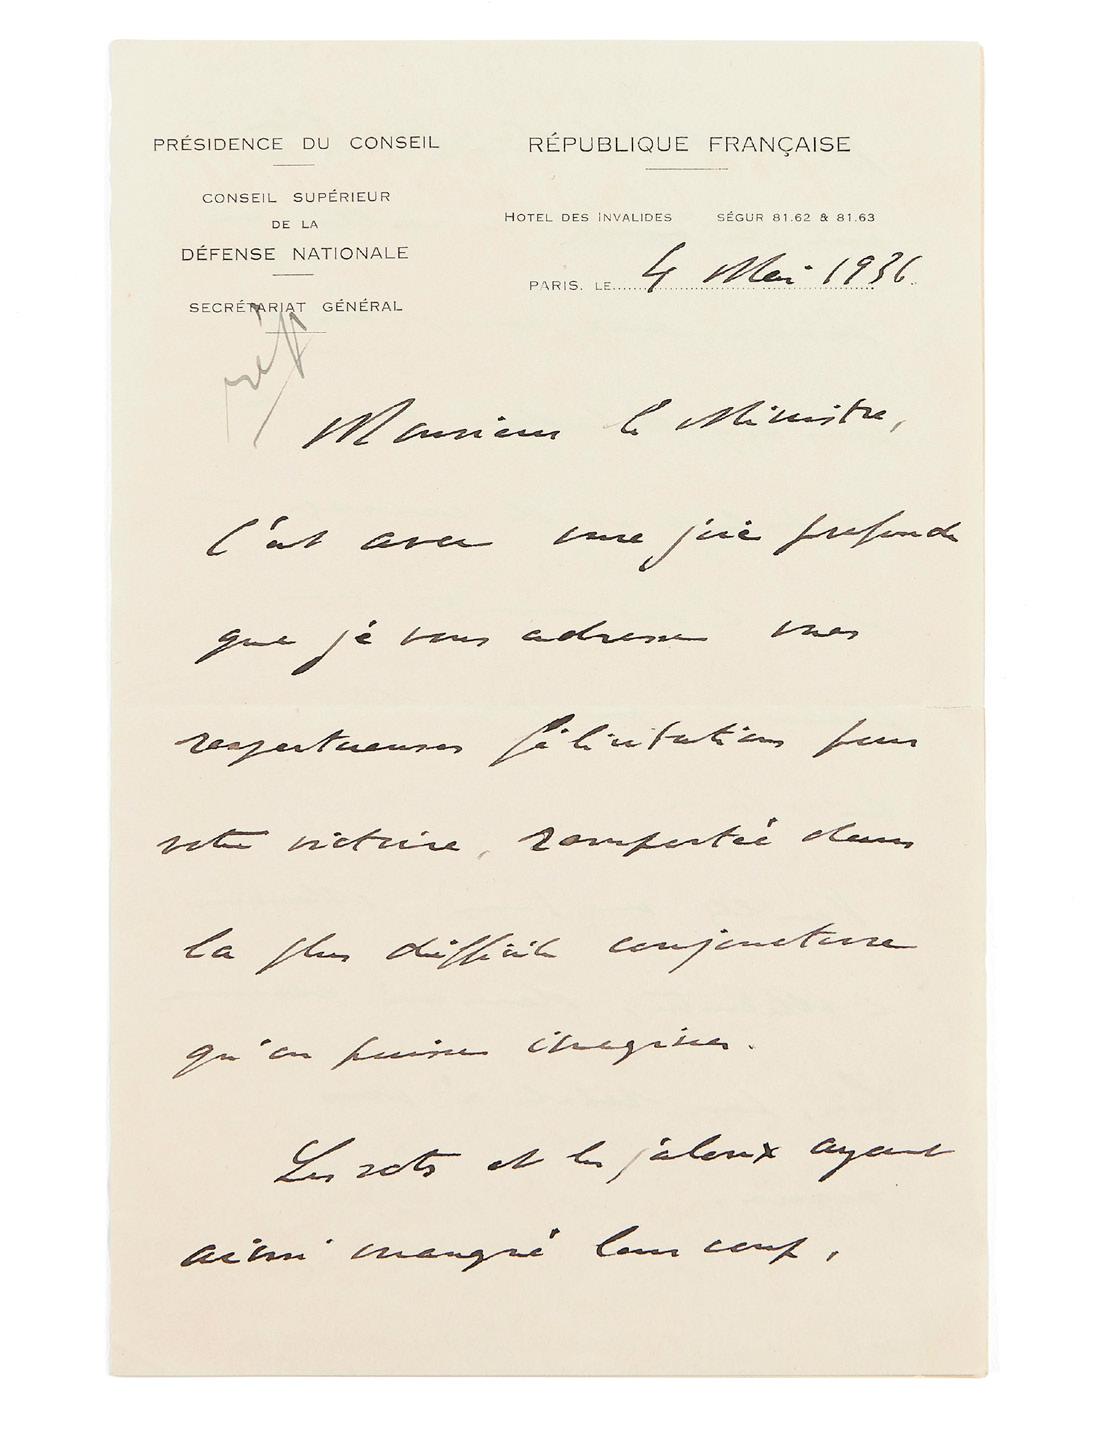 PRÉSIDENCE DU CONSEIL
CONSEIL SUPÉRIEUR
DE LA
DÉFENSE NATIONALE
SECRÉTARIAT GÉNÉRAL
RÉPUBLIQUE FRANÇAISE
HOTEL DES INVALIDES SÉGUR 81.62 & 81.63
PARIS. LE 4 Mai 1936.
Monsieur le Ministre,
C'est avec une joie profonde
que je vous adresse mes
respectueuses félicitations pour
votre victoire, remportée dans
la plus difficile conjoncture
qu'on puisse imaginer.
Les sots et les jaloux ayant
ainsi manqué leur coup,